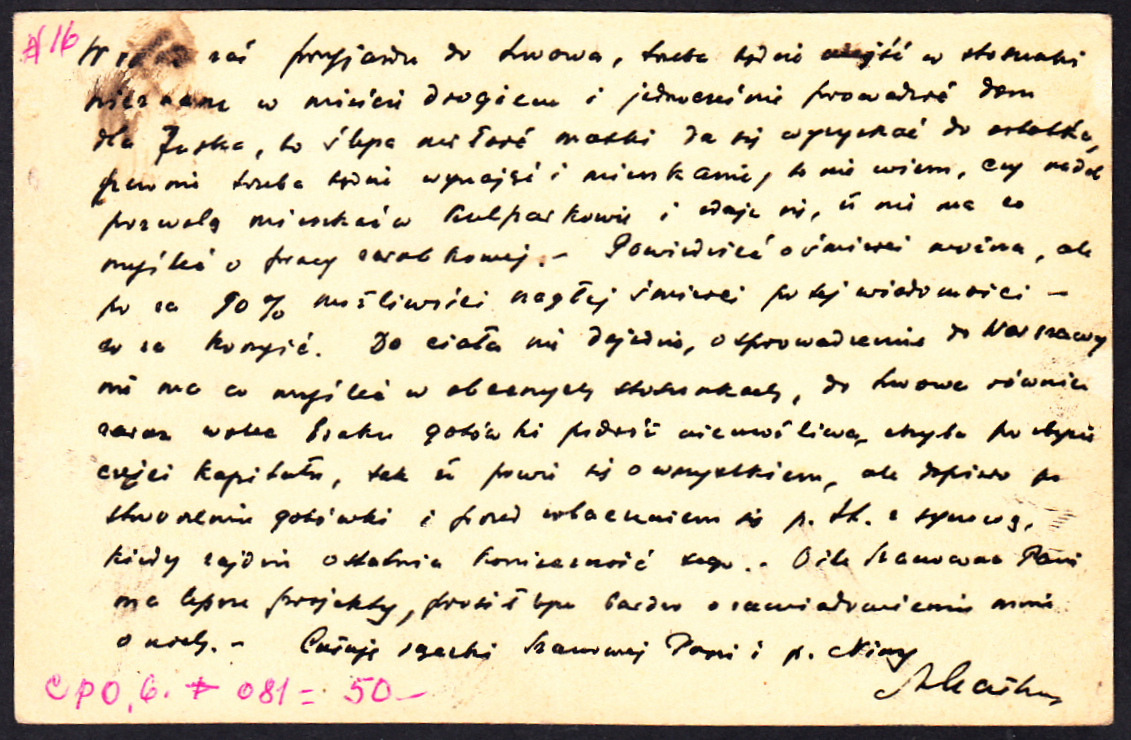 # 16
W razie zaś przyjazdu do Lwowa, trzeba będzie wejść w stosunki
nieznane w mieście drogiem i jednocześnie prowadzić dom
dla Jurka, bo ślepa miłość matki da się wyzyskać do ostatka,
pewnie trzeba będzie wynająć i mieszkanie, bo nie wiem, czy nadal
pozwolą mieszkać w Kulparkowie i zdaje się, iż nie ma co
myśleć o pracy zarobkowej. – Powiedzieć o śmierci można, ale
to za 90% możliwości nagłej śmierci po tej wiadomości –
co za korzyść. Do ciała nie dojedzie, o sprowadzenie do Warszawy
nie ma co myśleć w obecnych stosunkach, do Lwowa również
zaraz wobec braku gotówki podróż niemożliwa, chyba po zbyciu
części kapitału, tak iż powie się o wszystkiem, ale dopiero po
stworzeniu gotówki i przed zobaczeniem się p. St. z synową,
kiedy zajdzie ostatnia konieczność tego. – O ile Szanowna Pani
ma lepsze projekty, prosiłbym bardzo o zawiadomienie mnie
o nich. – Całuję rączki Szanownej Pani i p. Niny
C P O, 6. 081 = 50 –